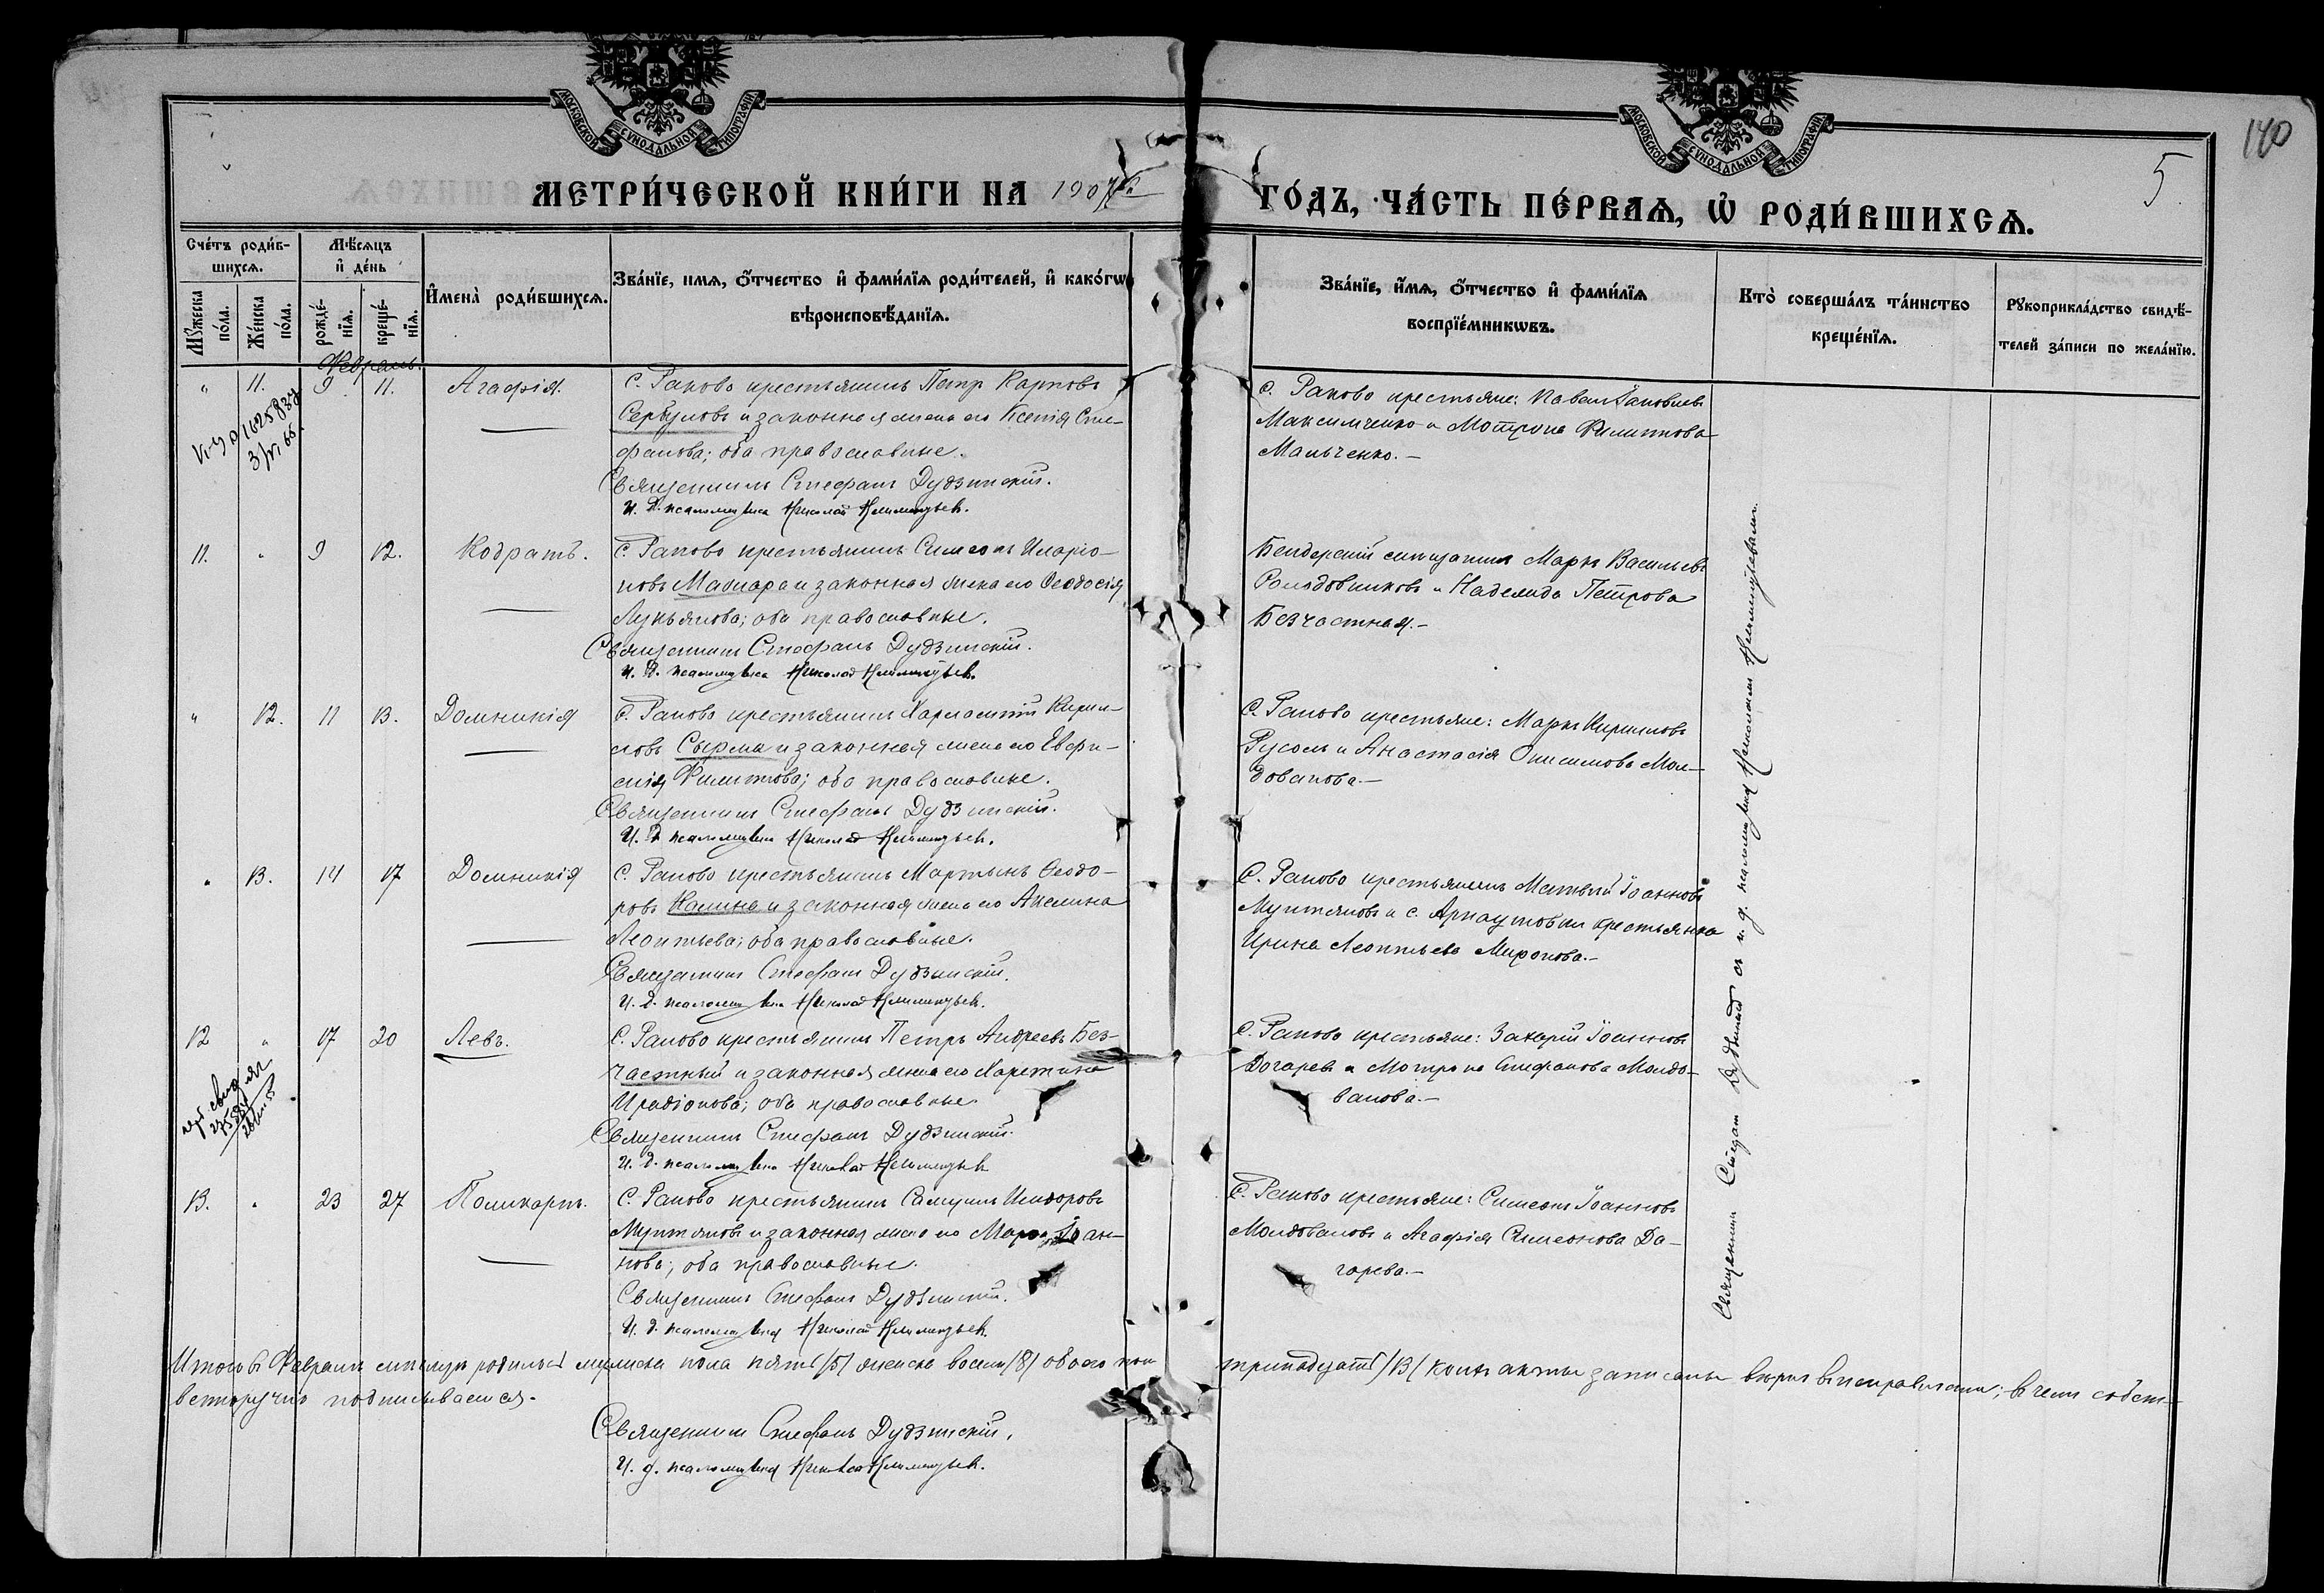 МОСКОВСКОЙ СѴНОДАЛЬНОЙ ТИПОГРАФІИ
МОСКОВСКОЙ СѴНОДАЛЬНОЙ ТИПОГРАФІИ
140
5
МЕТРИ́ЧЕСКОЙ КНИ́ГИ НА 1907 й ГО́ДЪ, ЧА́СТЬ ПЕ́РВАѦ, Ѡ҆ РОДИ́ВШИХСѦ.
Сче́тъ роди́в-
шихсѧ.
Мꙋжеска по́ла.
Же́нска по́ла.
Мѣ́сѧцъ
и҆ де́нь
рожде́-
нїѧ.
креще́-
нїѧ.
И҆мена̀ роди́вшихсѧ.
Зва́нїе, имѧ, ѻ҆́тчество и҆ фами́лїѧ роди́телей, и҆ како́гѡ
вѣроисповѣ́данїѧ.
Зва́нїе, и҆́мѧ, ѻ҆́тчество и҆ фами́лїѧ
воспрїе́мникѡвъ.
Кто̀ соверша́лъ та́инство
креще́нїѧ.
Рꙋкоприкла́дство свидѣ́-
телей за́писи по жела́нїю.
Февраль.
" 11. 9 11. Агафія.
С. Раково крестьянинъ Петр Карповъ
Сербуловъ и законная жена его Ксенія Сте-
фанова; оба православные.
Священникъ Стефанъ Дудзинскій.
И. д. псаломщика Николай
С. Раково крестьяне: Павел Іаковлевъ
Максимченко и Мотрона Филиппова
Мальченко.—
11. " 9 12. Кодратъ.
С. Раково крестьянинъ Симеонъ Иларіо-
новъ Маднара и законная жена его Ѳеодосія
Лукьянова; оба православные.
Священникъ Стефанъ Дудзинскій.
И. д. псаломщика Николай
Бендерскій мещанинъ Маркъ Васильевъ
и Надежда Петрова
Безчастная.—
" 12. 11 13. Домникія
С. Раково крестьянинъ Харлампій Кири-
ловъ Сырма и законная жена его Евфи-
мія Филиппова; оба православные.
Священникъ Стефанъ Дудзинскій.
И. д. псаломщика Николай
С. Раково крестьяне: Маркъ Кирилловъ
Русолъ и Анастасія Онисимова Мол-
дованова.—
" 13. 14 17 Домникія
С. Раково крестьянинъ Мартынъ Ѳеодо-
ровъ Калина и законная жена его Акилина
Леонтьева; оба православные.
Священникъ Стефанъ Дудзинскій.
И. д. псаломщика Николай
С. Раково крестьянинъ Матвѣй Іоанновъ
Мунтяновъ и с. Арнаутовки крестьянка
Ирина Леонтьева Миронова.—
12 " 17 20 Левъ.
С. Раково крестьянинъ Петръ Андреевъ Без-
частный и законная жена его Харитина
Иродіонова; оба православные.
Священникъ Стефанъ Дудзинскій.
И. д. псаломщика Николай
С. Раково крестьяне: Захарій Іоанновъ
Догаревъ и Мотрона Стефанова Молдо-
ванова.—
13. " 23 27 Поликарпъ.
С. Раково крестьянинъ Самуилъ Исидоровъ
Мунтяновъ и законная жена его Марѳа Іоан-
нова; оба православные.
Священникъ Стефанъ Дудзинскій.
И. д. псаломщика Николай
С. Раково крестьяне: Симеонъ Іоанновъ
Молдовановъ и Агафія Симеонова До-
гарева.—
Священникъ Стефанъ Дудзинскій съ и. д. псаломщика Николаемъ
Итого въ Февралѣ мѣсяцѣ родилось мужеска пола пять /5/ женска восемь /8/ обоего пола тринадцать /13/ коихъ акты записаны вѣрно и исправно; въ чемъ собст-
венноручно подписываемся.
Священникъ Стефанъ Дудзинскій.
И. д. псаломщика Николай